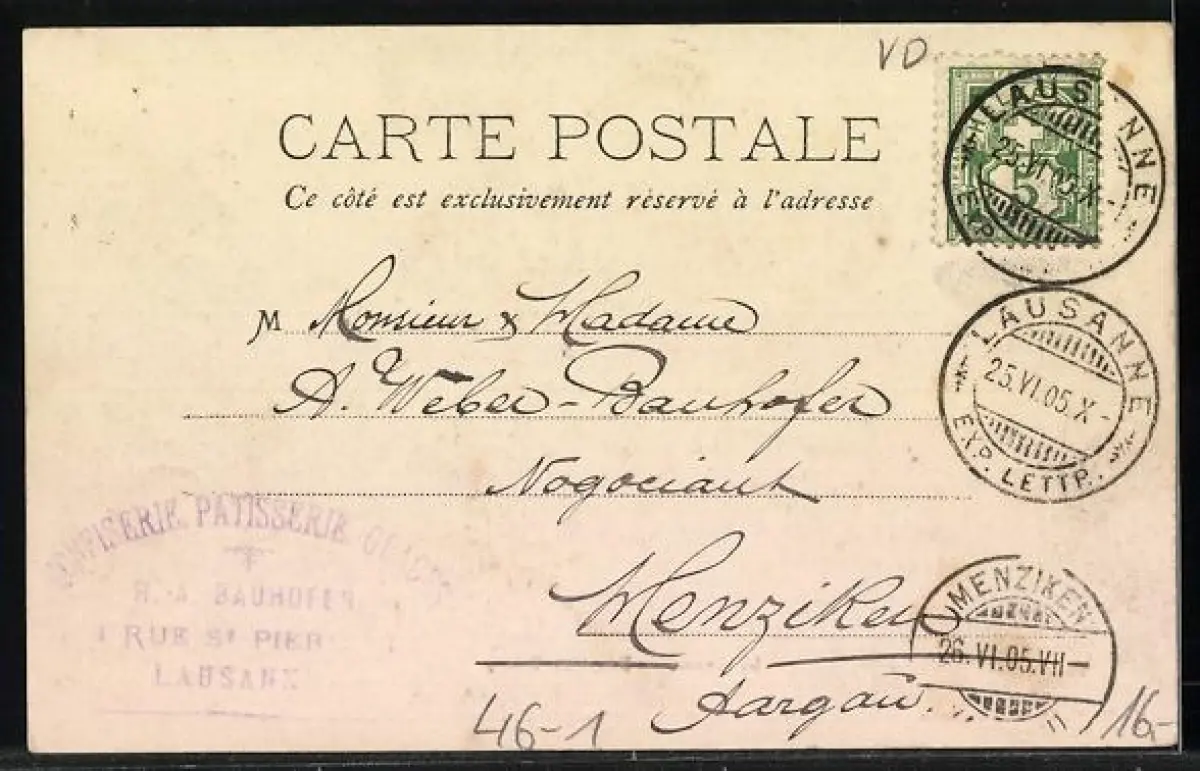 VD
CARTE POSTALE
Ce côté est exclusivement réservé à l'adresse
HEL
5
LAUSANNE
25.VI.05.X-
EXP.
M Monsieur & Madame
A. Weber-Bauhofer
Nogociant
Menziken
Aargau.
LAUSANNE
25.VI.05.X-
EXP. LETTR.
MENZIKEN
26.VI.05.VII-
CONFISERIE PATISSERIE
R. A. BAUHOFER
1 RUE St PIER
LAUSANN
46-1
16.-